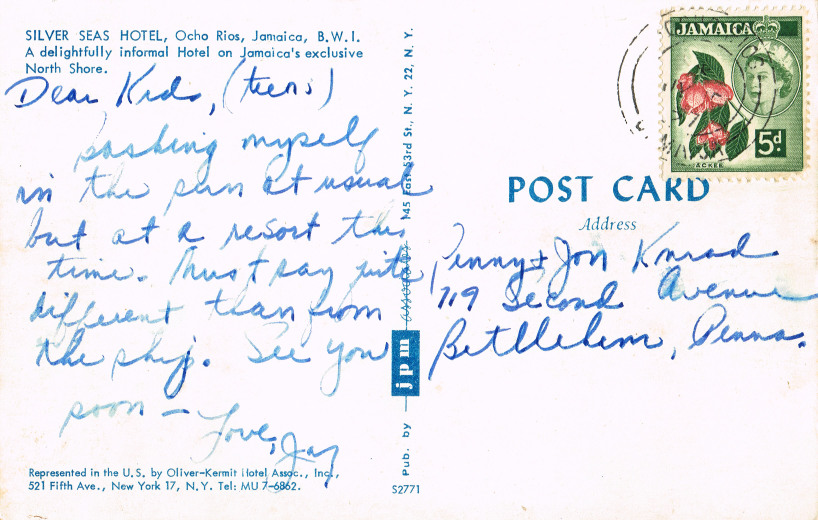 SILVER SEAS HOTEL, Ocho Rios, Jamaica, B.W.I.
A delightfully informal Hotel on Jamaica's exclusive
North Shore.
Dear Kids, (teens)
basking myself
in the sun at usual
but at a resort this
time. Must say quite
different than from
the ship. See you
soon — Love, Jay
Represented in the U.S. by Oliver-Kermit Hotel Assoc., Inc.,
521 Fifth Ave., New York 17, N.Y. Tel: MU 7-6862.
Pub. by jpm 145 East 53rd St., N. Y. 22, N. Y.
S2771
JAMAICA
5d.
ACKEE
POST CARD
Address
Penny & Jon
719 Second Avenue
Bethlehem, Penna.